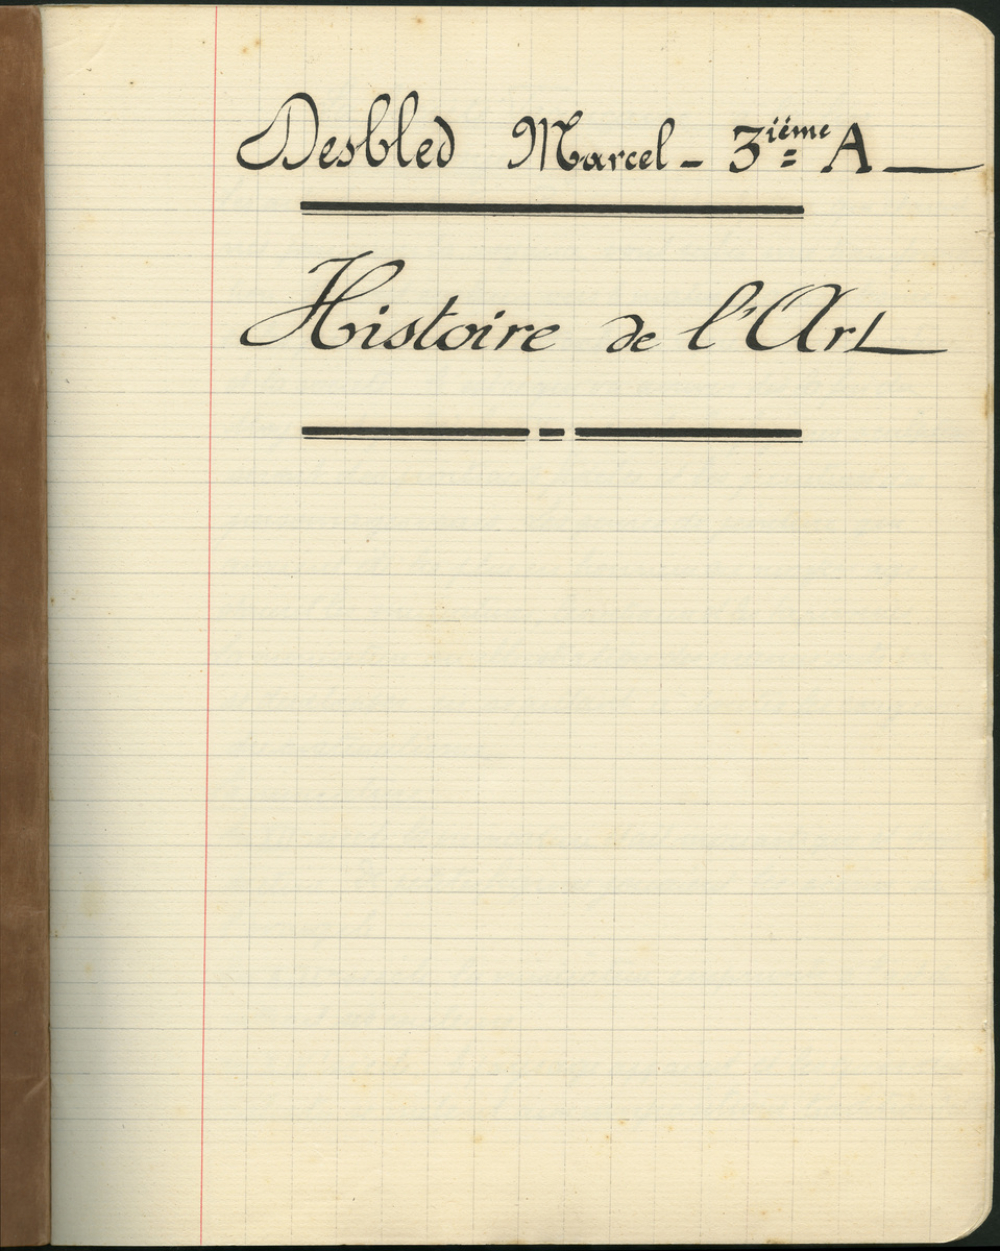 Desbled Marcel - 3ième A
Histoire de l'Art